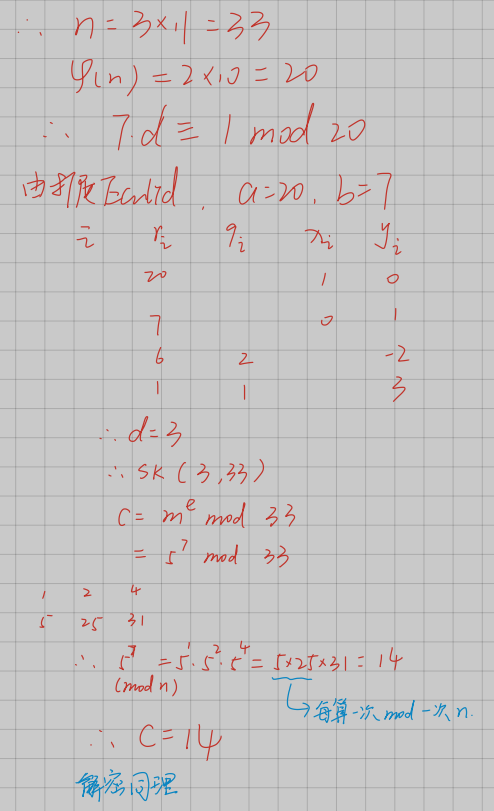 ∴ n = 3×11 = 33
φ(n) = 2×10 = 20
∴ 7·d ≡ 1 mod 20
由扩展Euclid, a=20, b=7
i ri qi xi yi
20 1 0
7 0 1
6 2 -2
1 1 3
∴ d=3
∴ SK (3,33)
C = m^e mod 33
= 5^7 mod 33
1 2 4
5 25 31
∴ 5^7 = 5^1·5^2·5^4 = 5×25×31 = 14
(mod n)
每算一次 mod 一次 n.
∴ C = 14
解密同理